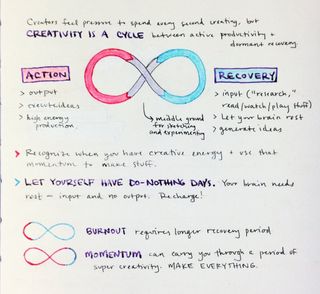 Creators feel pressure to spend every second creating, but
CREATIVITY IS A CYCLE between active productivity +
dormant recovery.
ACTION
> output
> execute ideas
> high energy
production.
middle ground
for sketching
and experimenting
RECOVERY
> input ("research,"
read/watch/play stuff)
> let your brain rest
> generate ideas
> Recognize when you have creative energy + use that
momentum to make stuff.
> LET YOURSELF HAVE DO-NOTHING DAYS. Your brain needs
rest — input and no output. Recharge!
BURNOUT requires longer recovery period
MOMENTUM can carry you through a period of
super creativity. MAKE EVERYTHING.